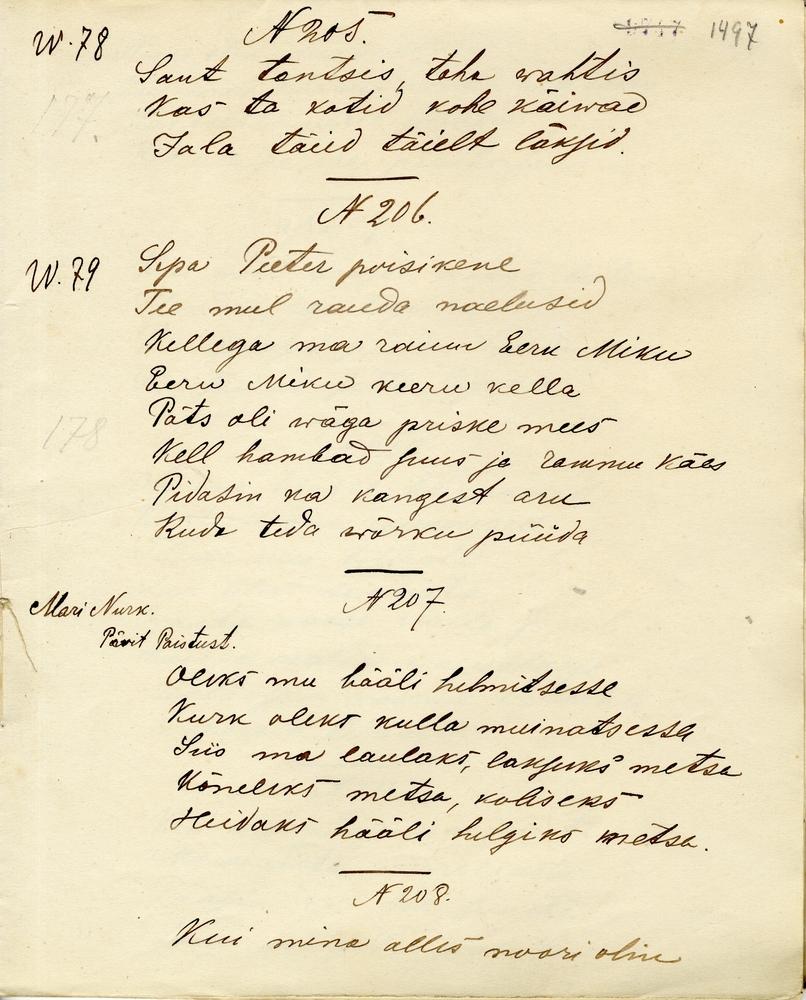 1497
W. 78
N 205.
Sant tantsis, taha wahtis
Kas ta kotid kohe käiwad
Jala täied täielt läksid.
177.
N 206.
W. 79
Sepa Peeter poisikene
Tee mul rauda naelusid
Kellega ma raiun Eeru Miku
Eeru Miku keeru kella
Päts oli wäga priske mees
Kell hambad suus ja rammu käes
178
Pidasin ka kangest aru
Kuda teda wõrku püüda
Mari Nurk.
Pärit Paistust.
N 207.
Oleks mu hääli helmitsesse
Kurk oleks kulla muinatsesse
Siis ma laulaks, laksuks metsa
Kõneleks metsa, koliseks
Heidaks hääli helgiks metsa.
N 208.
Kui mina alles noori olin